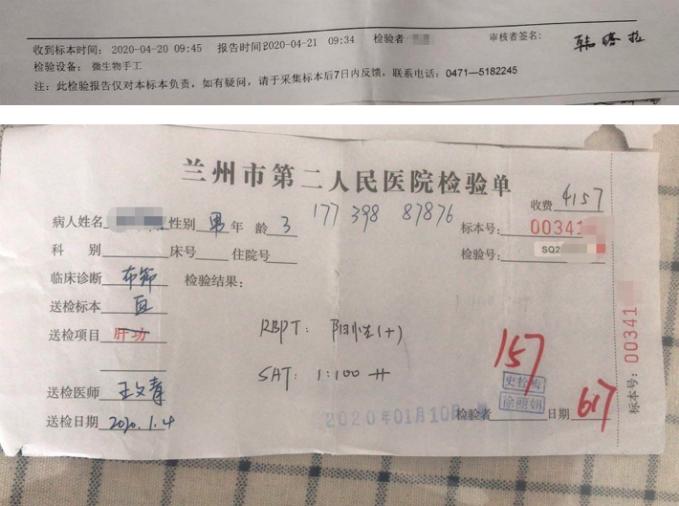 收到标本时间: 2020-04-20 09:45 报告时间2020-04-21 09:34 检验者 审核者签名:
检验设备: 微生物手工
注: 此检验报告仅对本标本负责,如有疑问,请于采集标本后7日内反馈,联系电话: 0471—5182245
兰州市第二人民医院检验单
收费 4157
病人姓名 性别 男 年龄 3 177 398 87876 标本号: 00341
科别 床号 住院号 检验号: SQ2
临床诊断 布 检验结果:
送检标本 血
送检项目 肝功 RBPT: 阳性(+)
SAT: 1:100 ++
157
送检医师 王文青
送检日期 2020.1.4 2020年01月10日 检验者 日期 617
标本号: 00341